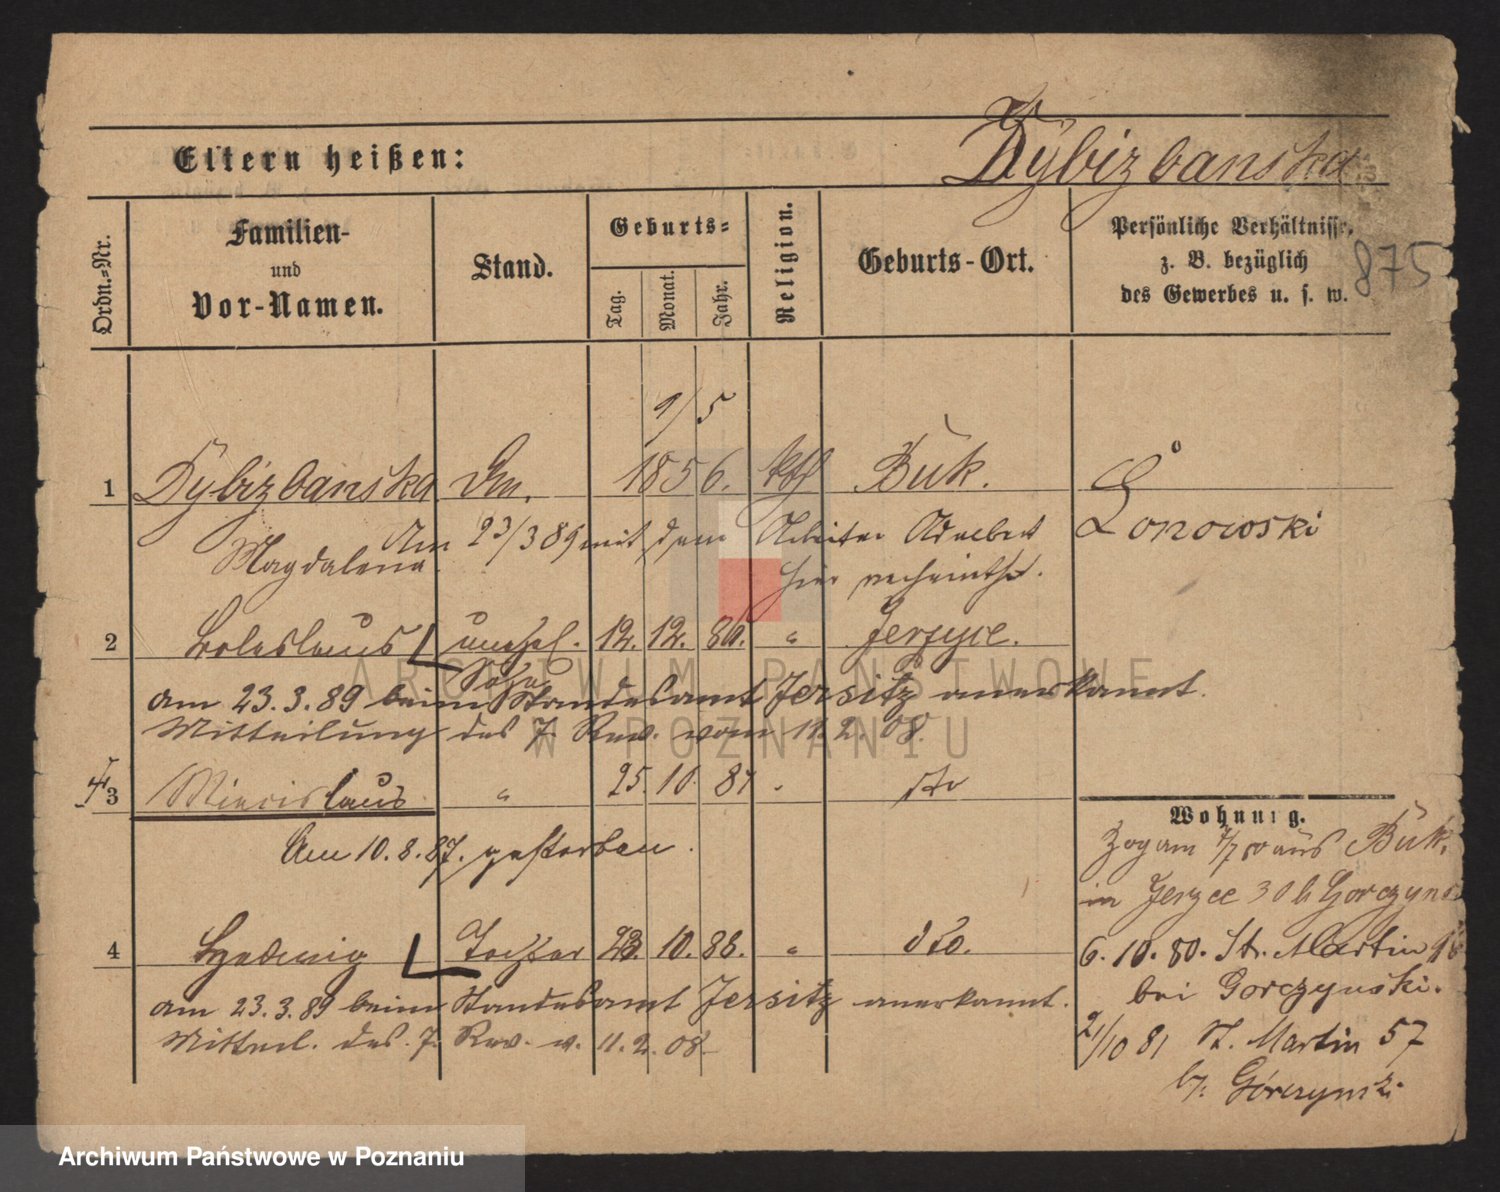 Eltern heißen:
Dybizbanska
Ordn.-Nr.
Familien-
und
Vor-Namen.
Stand.
Geburts-
Tag.
Monat.
Jahr.
Religion.
Geburts-Ort.
Persönliche Verhältnisse,
z. B. bezüglich
des Gewerbes u. s. w.
875
9/5
1 Dybizbanska 1856. kth Buk.
Magdalena
Am 23/3 89 mit dem Arbeiter Adalbert Lonowski
hier verheirathet.
2 Boleslaus unehel. 12. 12. 80. " Jerzyce.
Sohn
am 23.3.89 beim Standesamt Jersitz anerkannt.
Mitteilung des 7. Rev. vom 11.2.08.
3 " 25. 10. 84 dto
Am 10.8.87. gestorben.
4 Hedwig Tochter 23. 10. 86. " dto.
am 23.3.89 beim Standesamt Jersitz anerkannt.
Mitteil. des 7. Rev. v. 11.2.08
Wohnung.
Zog am aus Buk,
in 30 b
6. 10. 80. St. Martin
bei Gorczynski.
2/10 81 St. Martin 57
b. Górczynski
ARCHIWUM PAŃSTWOWE
W POZNANIU
Archiwum Państwowe w Poznaniu